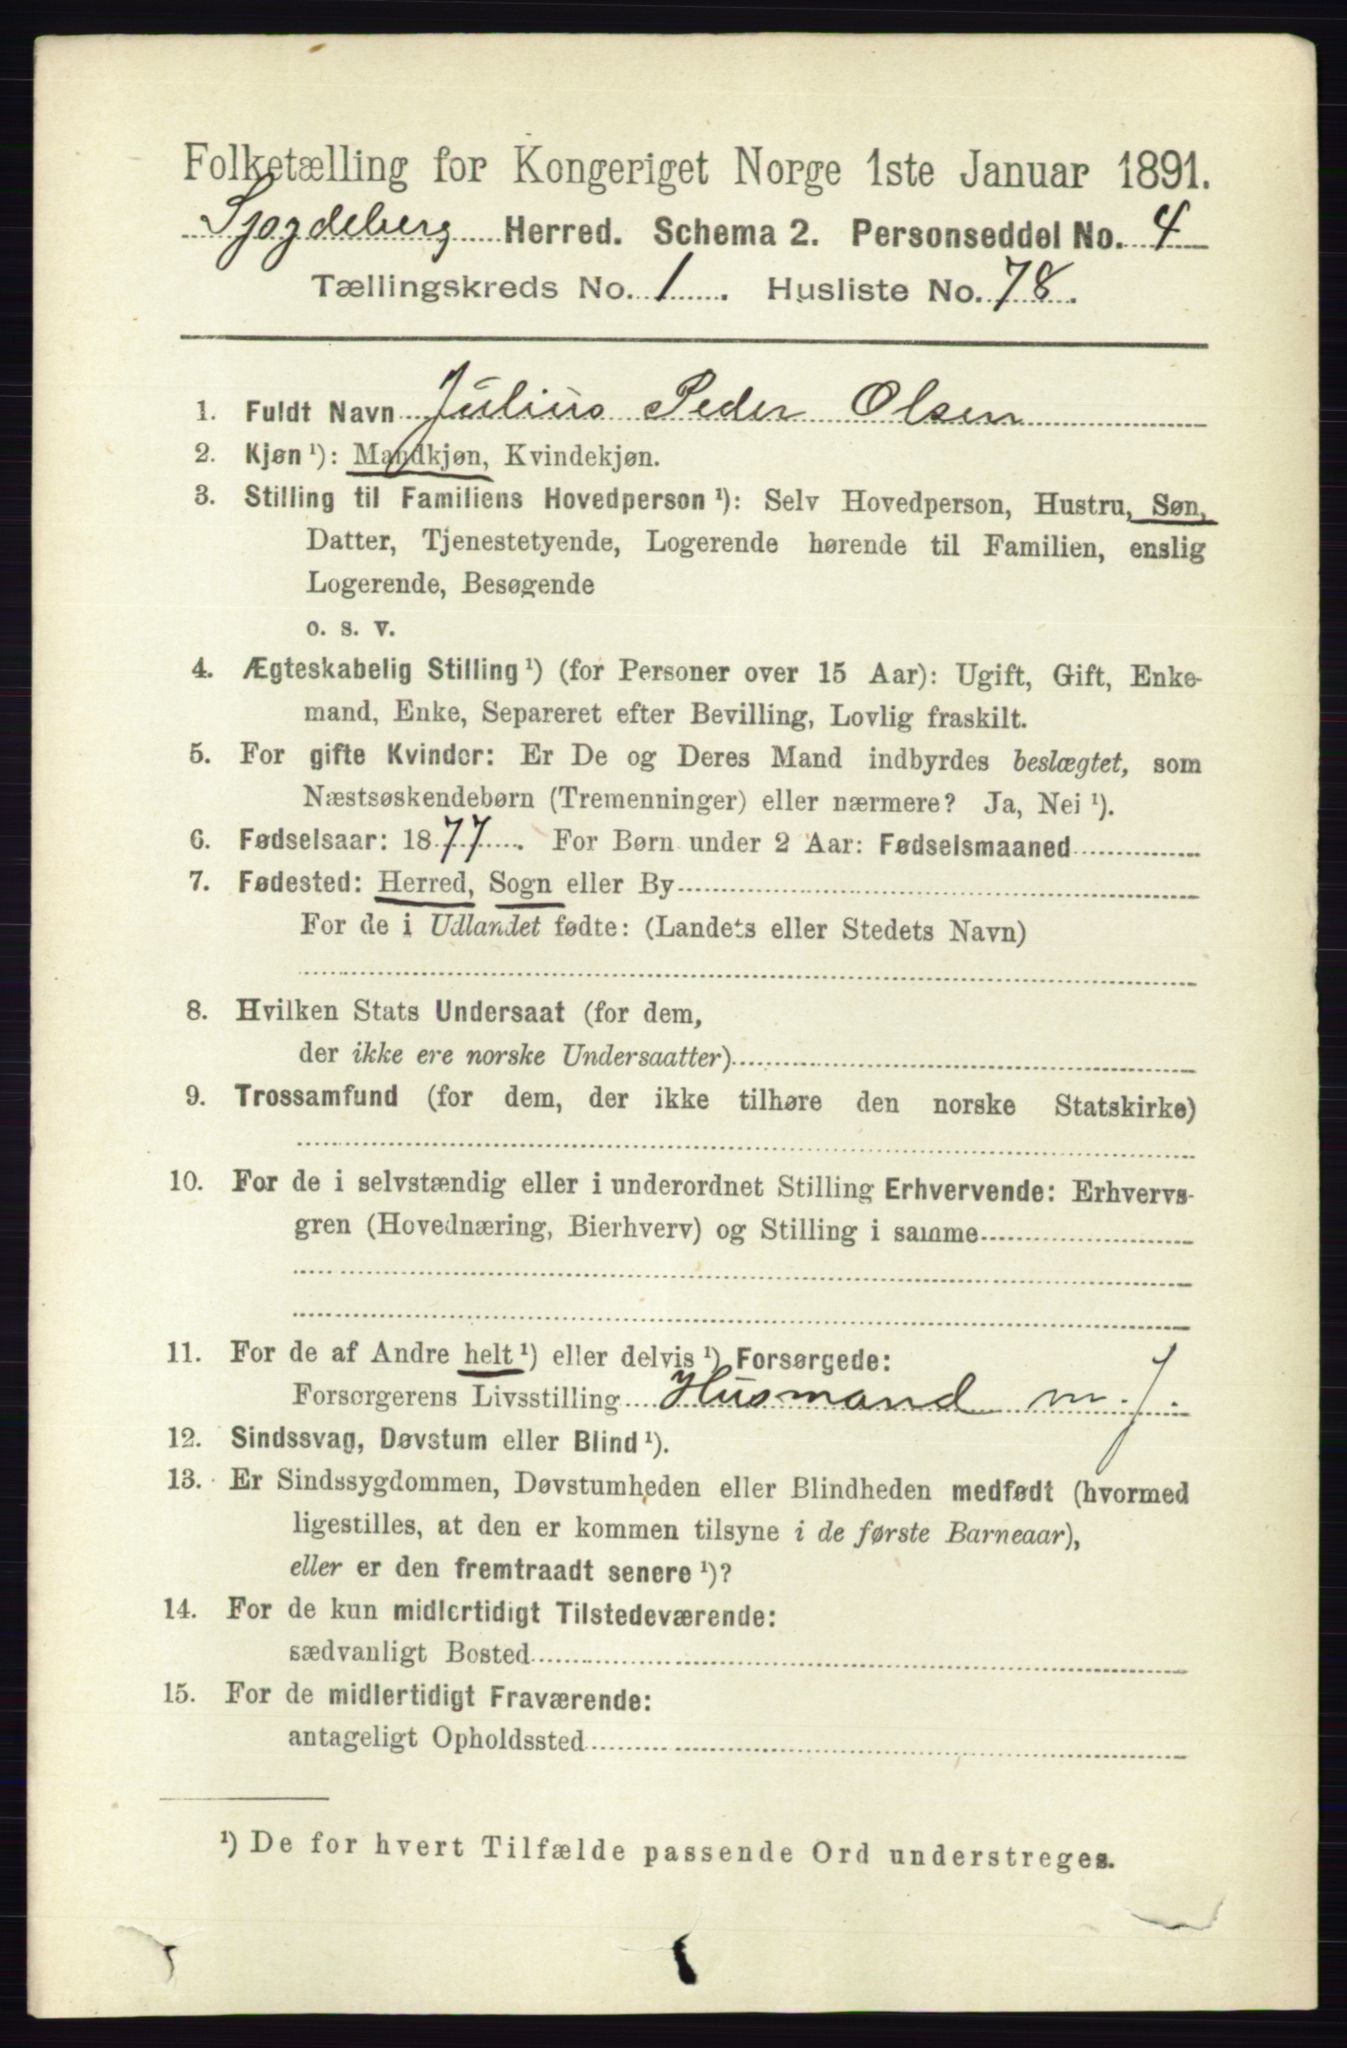 Folketælling for Kongeriget Norge 1ste Januar 1891.
Sjøgdeberg Herred. Schema 2. Personseddel No. 4
Tællingskreds No. 1. Husliste No. 78.
1. Fuldt Navn Julius Peder Olsen
2. Kjøn ¹): Mandkjøn, Kvindekjøn.
3. Stilling til Familiens Hovedperson ¹): Selv Hovedperson, Hustru, Søn,
Datter, Tjenestetyende, Logerende hørende til Familien, enslig
Logerende, Besøgende
o. s. v.
4. Ægteskabelig Stilling ¹) (for Personer over 15 Aar): Ugift, Gift, Enke-
mand, Enke, Separeret efter Bevilling, Lovlig fraskilt.
5. For gifte Kvinder: Er De og Deres Mand indbyrdes beslægtet, som
Næstsøskendebørn (Tremenninger) eller nærmere? Ja, Nei ¹).
6. Fødselsaar: 1877. For Børn under 2 Aar: Fødselsmaaned
7. Fødested: Herred, Sogn eller By
For de i Udlandet fødte: (Landets eller Stedets Navn)
8. Hvilken Stats Undersaat (for dem,
der ikke ere norske Undersaatter)
9. Trossamfund (for dem, der ikke tilhøre den norske Statskirke)
10. For de i selvstændig eller i underordnet Stilling Erhvervende: Erhvervs-
gren (Hovednæring, Bierhverv) og Stilling i samme
11. For de af Andre helt ¹) eller delvis ¹) Forsørgede:
Forsørgerens Livsstilling Husmand m. J.
12. Sindssvag, Døvstum eller Blind ¹).
13. Er Sindssygdommen, Døvstumheden eller Blindheden medfødt (hvormed
ligestilles, at den er kommen tilsyne i de første Barneaar),
eller er den fremtraadt senere ¹)?
14. For de kun midlertidigt Tilstedeværende:
sædvanligt Bosted
15. For de midlertidigt Fraværende:
antageligt Opholdssted
¹) De for hvert Tilfælde passende Ord understreges.